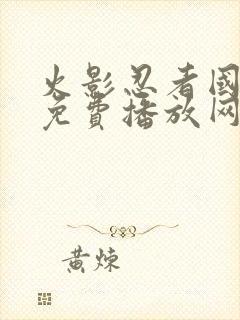 火影忍者國
免費播放网
黃炼